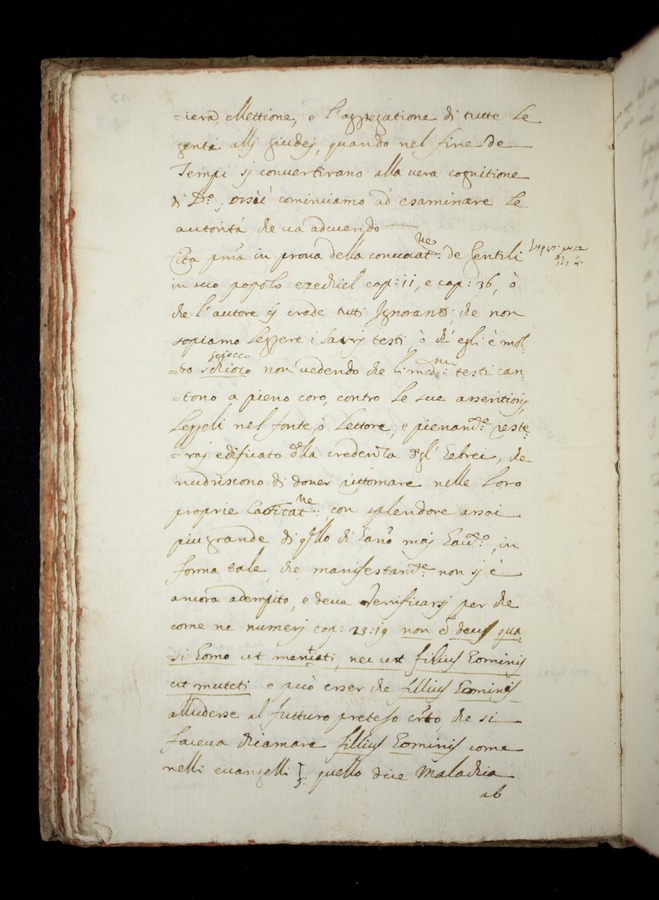 =iera Mettione, e l'aggregatione di tutte le
genti alli giudej, quando nel fine de
Tempi si convertirano alla vera cognitione
di D.º, orsù cominciamo ad esaminare le
autorità che va adcuendo
Cita pma in prova della convocat:ne de Gentili
in suo popolo ezechiel cap: 11, e cap: 36, ò
che l'autore ci crede tutti Ignoranti che non
sapiamo leggere i sacri testi, ò ch' egli è mol=
=to sciocco non vedendo che li med:mi testi can=
=tono a pieno coro, contro le sue assertioni,
Leggeli nel fonte, ò Lettore, e pienam:te reste=
=rai edificato dlla credenza degl' Eebrei, che
nudriscono di dover ritornare nelle loro
proprie Cabitat:ne, con splendore assai
piu grande di qllo di Eanº maj Eauto, in
forma tale, che manifestam:te non si è
ancora adempito, e deve verificarsi per che
come ne numeri cap: 23:19 non è deus qua=
=si Eomo ut mentiati, nec ut filius Eominis
ut muteti e può esser che filius Eominis
alludesse al futturo preteso crto che si
faceva chiamare filius Eominis come
nelli evangelli quello dice Maladia
ab